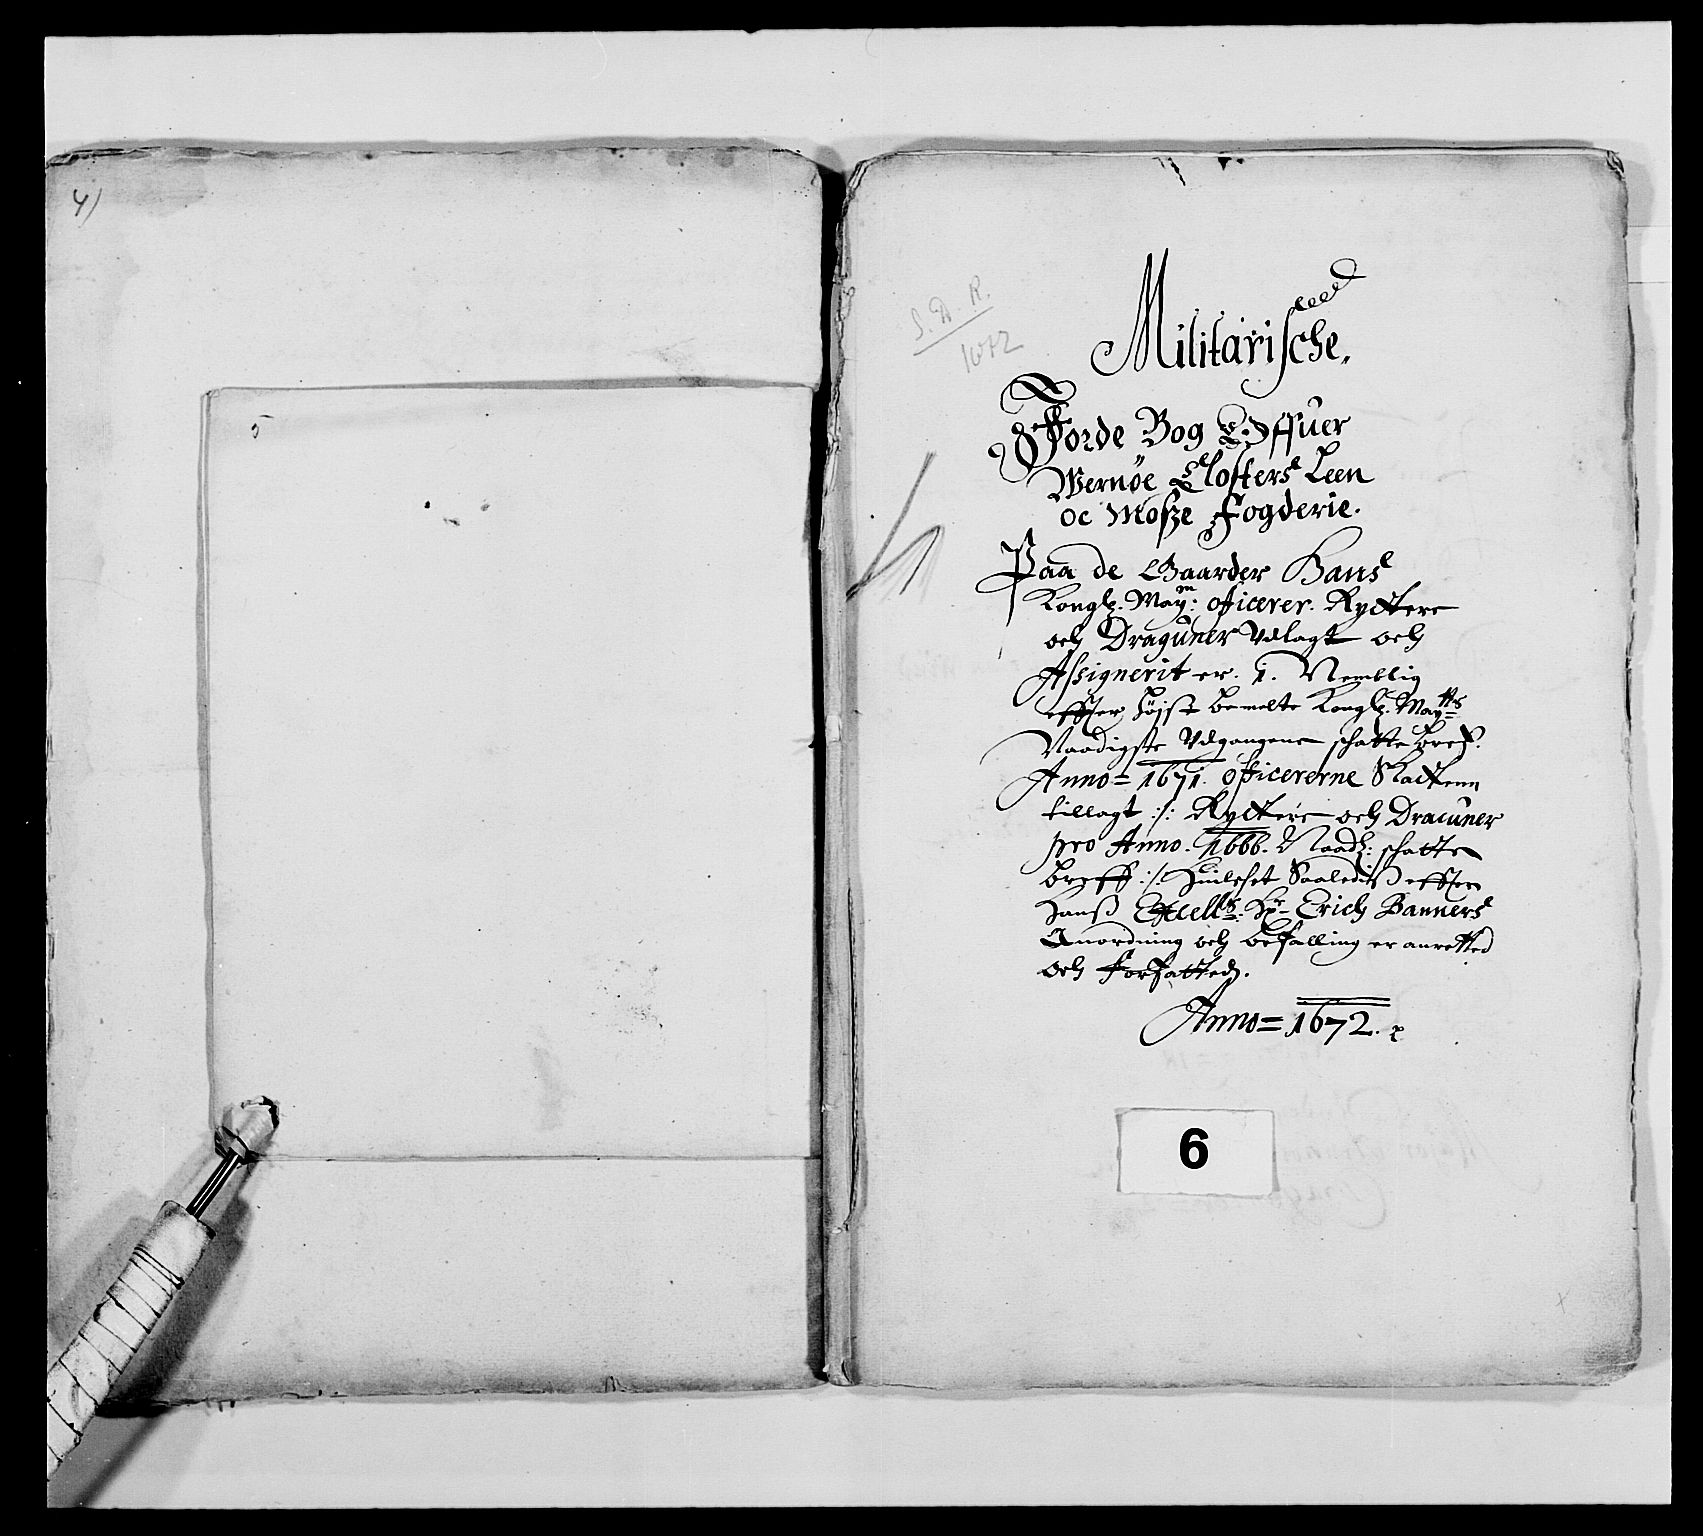 4)
5
S. A. R.
1672
Militarische.
Jorde Bog Offuer
Wernøe Closters Leen
oc Mosze Fogderie.
Paa de Gaarder Hans
Kongl. May: officerer. Ryttere
och Draguner Vdlagt och
Assignerit er. i. Nemblig
effter høist bemelte Kongl. Maytts
Naadigste Vdgangene schatte bref.
Anno = 1671. officererne Skatten
tillagt :/: Ryttere och Dracuner
pro Anno. 1666. Naadl: schatte
breff :/: Huilchet Saaledis effter
Hanß Excell: Hr Erich Banners
Anordning och befalling er anretted
och forfatted.
Anno = 1672.
6